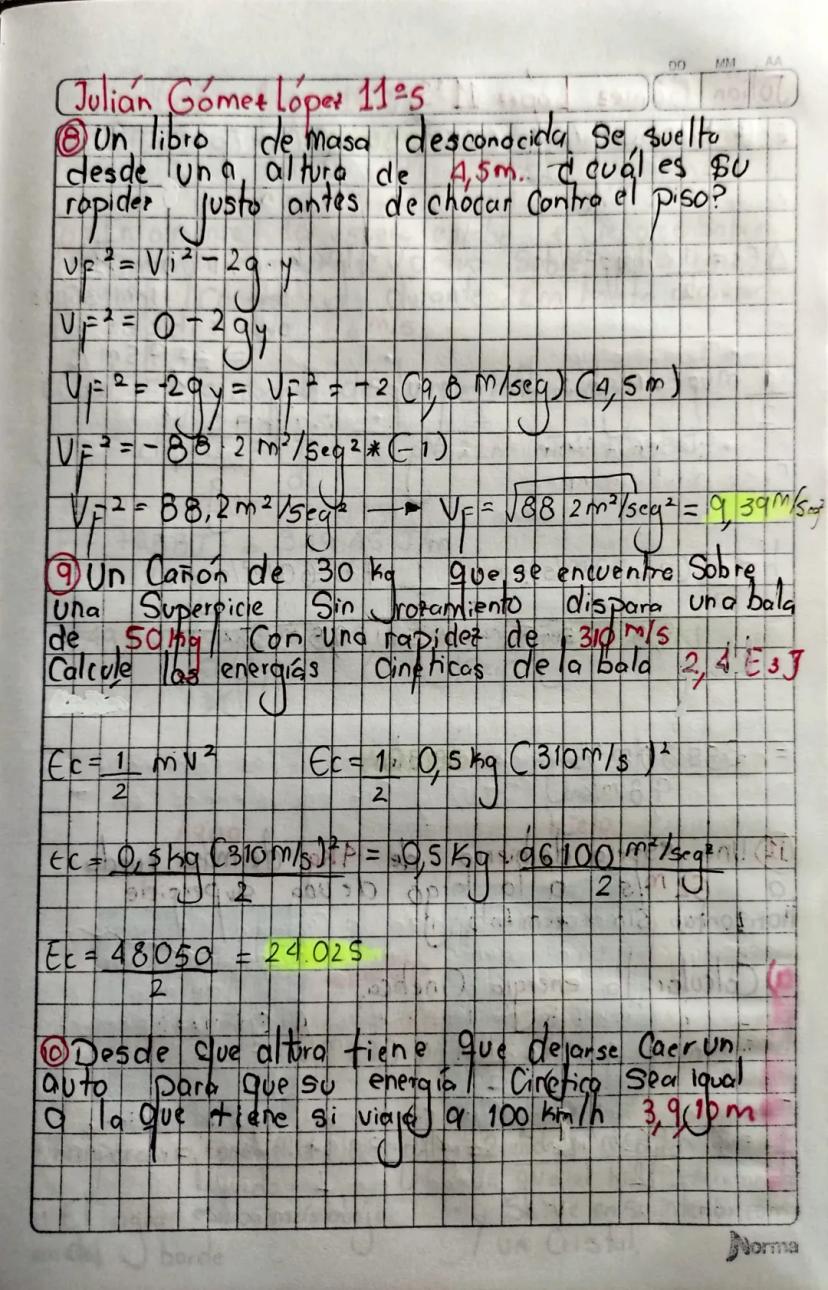 DD MM AA
Julián Gómez López 11°5
⑧ Un libro de masa desconocida se suelto
desde una altura de 4,5m. ¿cuál es su
rapidez justo antes de chocar contra el piso?
VF² = Vi² - 2g·y
VF² = 0 - 2gy
VF² = -2gy = VF² = -2 (9,8 m/seg) (4,5m)
VF² = -88 2 m²/seg² * (-1)
VF² = 88,2m²/seg² → VF = √88 2m²/seg² = 9,39 m/seg
⑨ Un Cañón de 30 kg que se encuentre Sobre
una Superficie Sin rozamiento dispara una bala
de 50 kg Con una rapidez de 310 m/s
Calcule las energías cinéticas de la bala 2,4 E3J
Ec = 1/2 mV² Ec = 1/2 · 0,5 kg (310m/s)²
Ec = 0,5kg (310m/s)²/2 = 0,5 Kg · 96100 m²/seg²/2
Ec = 48050/2 = 24.025
⑩ Desde que altura tiene que dejarse Caer un
auto para que su energía Cinética sea igual
a la que tiene si viaja a 100 km/h 3,9,10m
Norma